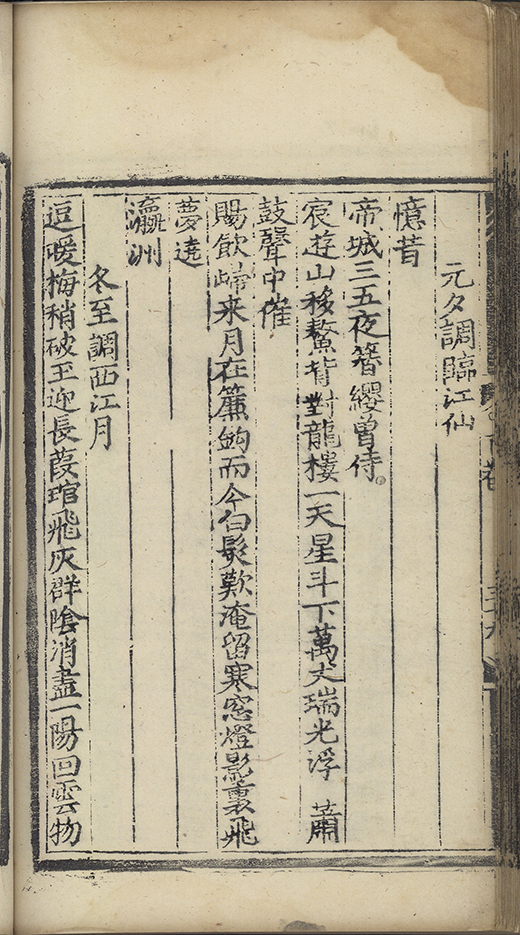 元夕調臨江仙
憶昔
帝城三五夜簪纓曾侍
宸遊山移鰲背對龍樓一天星斗下萬丈瑞光浮 蕭
鼓聲中催
賜飲歸来月在簾鈎而今白髮歎淹留寒窓燈影裏飛
夢遶
瀛洲
冬至調西江月
逗暖梅稍破玉迎長葭琯飛灰群陰消盡一陽回雲物